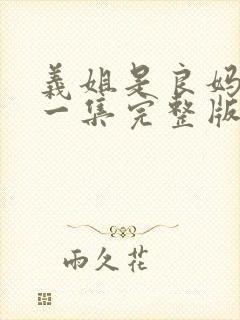 義姐是良妈
一集完整版
雨久花